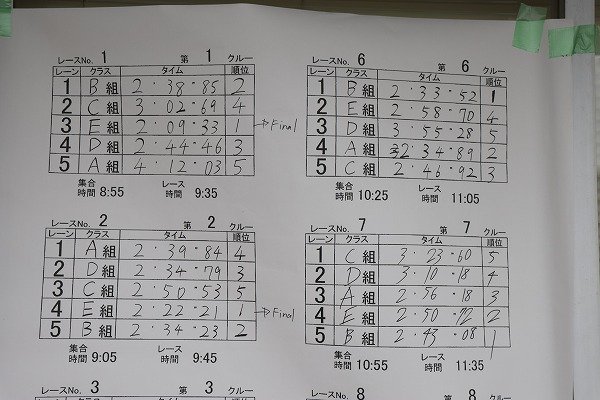 レースNo. 1 第 1 クルー
レーン クラス タイム 順位
1 B 組 2・38・85 2
2 C 組 3・02・69 4
3 E 組 2・09・33 1 →Final
4 D 組 2・44・46 3
5 A 組 4・12・03 5
集合時間 8:55 レース時間 9:35
レースNo. 2 第 2 クルー
レーン クラス タイム 順位
1 A 組 2・39・84 4
2 D 組 2・34・79 3
3 C 組 2・50・53 5
4 E 組 2・22・21 1 →Final
5 B 組 2・34・23 2
集合時間 9:05 レース時間 9:45
レースNo. 3 第 3 クルー
レースNo. 6 第 6 クルー
レーン クラス タイム 順位
1 B 組 2・33・52 1
2 E 組 2・58・70 4
3 D 組 3・55・28 5
4 A 組 2・34・89 2
5 C 組 2・46・92 3
集合時間 10:25 レース時間 11:05
レースNo. 7 第 7 クルー
レーン クラス タイム 順位
1 C 組 3・23・60 5
2 D 組 3・10・18 4
3 A 組 2・56・18 3
4 E 組 2・50・72 2
5 B 組 2・43・08 1
集合時間 10:55 レース時間 11:35
レースNo. 8 第 8 クルー